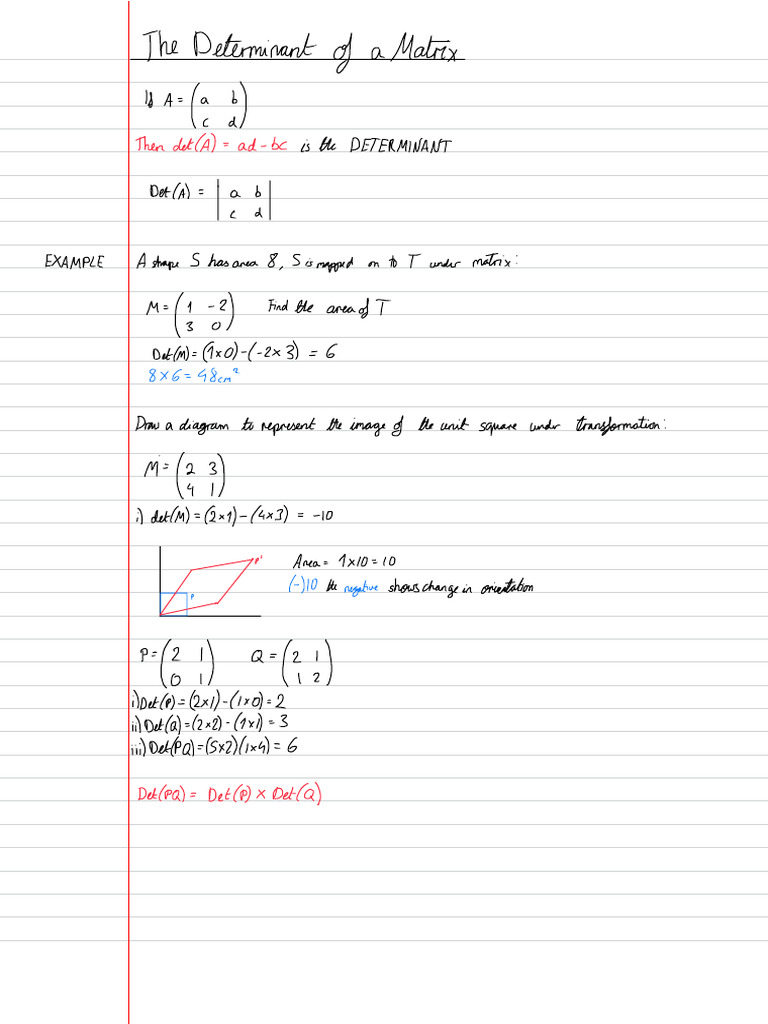 The Determinant of a Matrix
If A = ( a b
c d )
Then det(A) = ad - bc is the DETERMINANT
Det(A) = | a b |
| c d |
EXAMPLE A shape S has area 8, S is mapped on to T under matrix:
M = ( 1 -2 ) Find the area of T
( 3 0 )
Det(M) = (1×0) - (-2×3) = 6
8×6 = 48cm²
Draw a diagram to represent the image of the unit square under transformation:
M = ( 2 3 )
( 4 1 )
i) det(M) = (2×1) - (4×3) = -10
P' Area = 1×10 = 10
P (-)10 the negative shows change in orientation
P = ( 2 1 ) Q = ( 2 1 )
( 0 1 ) ( 1 2 )
i) Det(P) = (2×1) - (1×0) = 2
ii) Det(Q) = (2×2) - (1×1) = 3
iii) Det(PQ) = (5×2)(1×4) = 6
Det(PQ) = Det(P) × Det(Q)